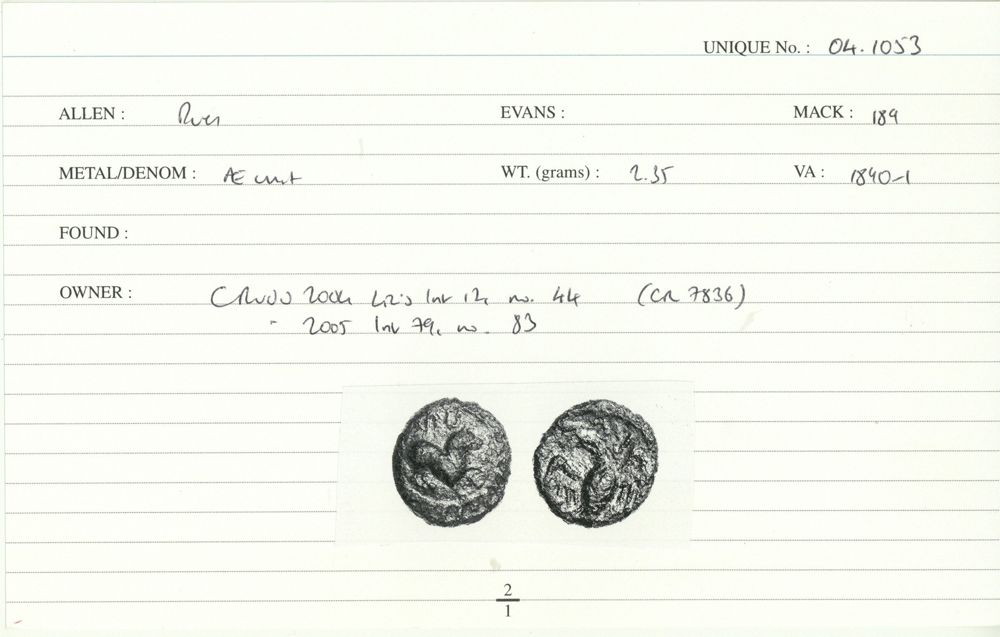 UNIQUE No. : 04.1053
ALLEN : Rues EVANS : MACK : 189
METAL/DENOM : Æ unit WT. (grams) : 2.35 VA : 1840-1
FOUND :
OWNER : 2004 Lists Inv 12, no. 44 (CR 7836)
" 2005 Inv 79, no. 83
2
1